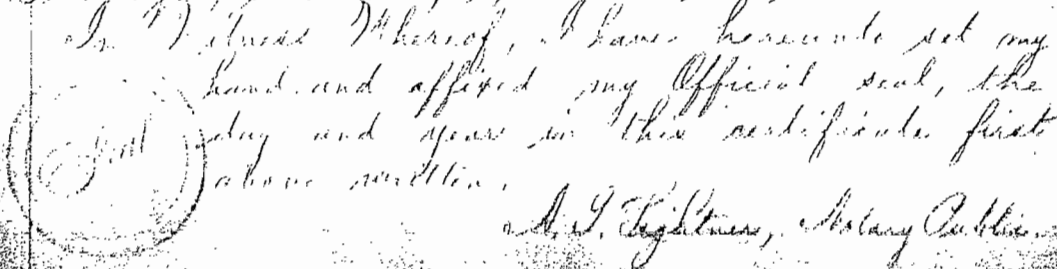 In Witness Whereof, I have hereunto set my
hand and affixed my Official seal, the
day and year in this certificate first
Seal
above written.
Notary Public